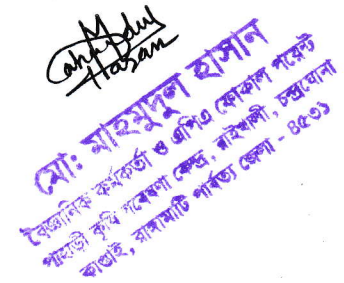 Mahmudul
Hasan
মো: মাহমুদুল হাসান
বৈজ্ঞানিক কর্মকর্তা ও এপিএ ফোকাল পয়েন্ট
পাহাড়ী কৃষি গবেষণা কেন্দ্র, রাইখালী, চন্দ্রঘোনা
কাপ্তাই, রাঙ্গামাটি পার্বত্য জেলা - ৪৫৩১